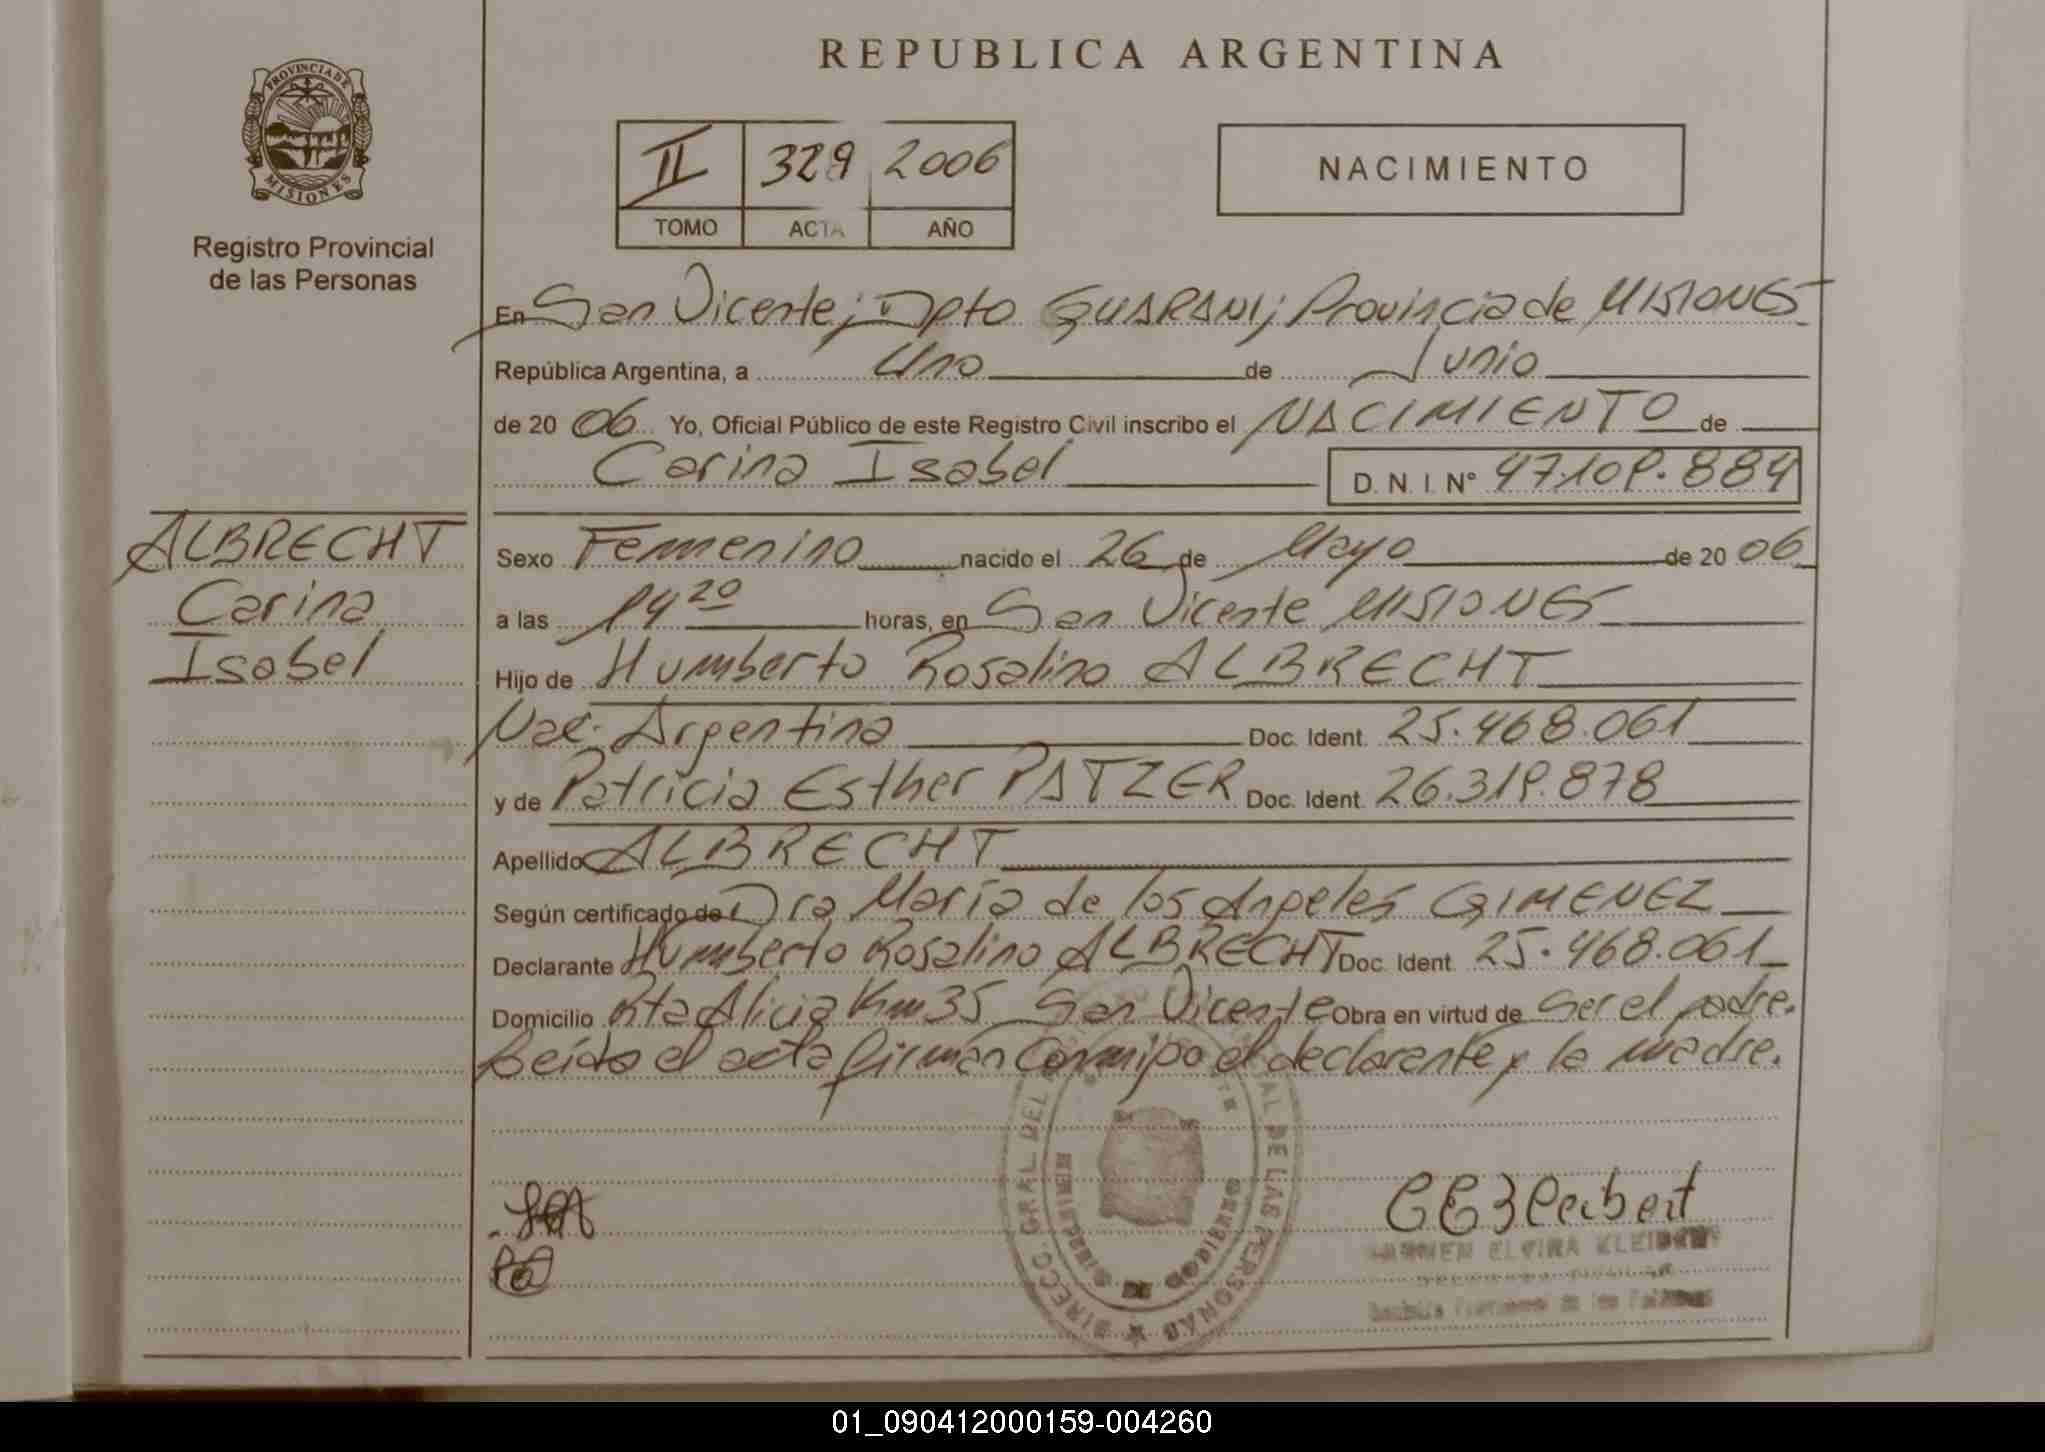 REPUBLICA ARGENTINA
PROVINCIA DE
MISIONES
Registro Provincial
de las Personas
II 329 2006
TOMO ACTA AÑO
NACIMIENTO
En San Vicente; Dpto GUARANI; Provincia de MISIONES
República Argentina, a Uno de Junio
de 20 06 Yo, Oficial Público de este Registro Civil inscribo el NACIMIENTO de
Carina Isabel D. N. I. Nº 47.109.884
ALBRECHT
Carina
Isabel
Sexo Femenino nacido el 26 de Mayo de 20 06
a las 14 20 horas, en San Vicente MISIONES
Hijo de Humberto Rosalino ALBRECHT
Nac. Argentina Doc. Ident. 25.468.061
y de Patricia Esther PATZER Doc. Ident. 26.319.878
Apellido ALBRECHT
Según certificado de Dra María de los Angeles GIMENEZ
Declarante Humberto Rosalino ALBRECHT Doc. Ident. 25.468.061
Domicilio Rta Alicia Km 35 San Vicente Obra en virtud de ser el padre.
Leída el acta firman conmigo el declarante y la madre.
DIRECC GRAL DEL DE LAS PERSONAS
ELVIRA
01_090412000159-004260